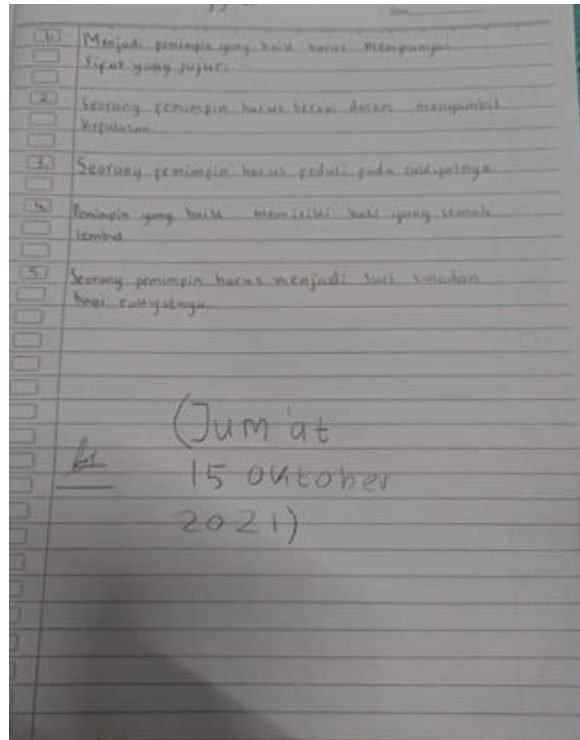 1. Menjadi pemimpin yang baik harus mempunyai
Sifat yang jujur.
2. Seorang pemimpin harus berani dalam mengambil
keputusan.
3. Seorang pemimpin harus peduli pada
4. Pemimpin yang baik memiliki hati yang lemah
lembut
5. Seorang pemimpin harus menjadi suri
bagi rakyatnya.
(Jum'at
15 Oktober
2021)